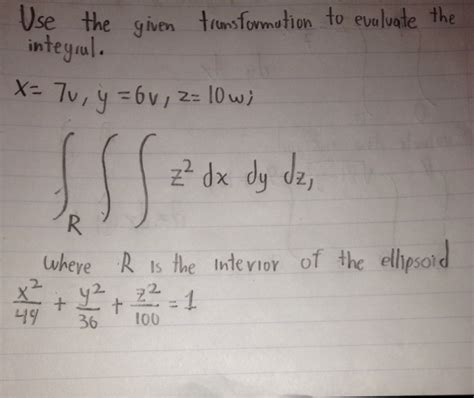 Use the given transformation to evaluate the
integral.
x = 7u, y = 6v, z = 10w;
∫∫∫ z² dx dy dz,
R
where R is the interior of the ellipsoid
x²/49 + y²/36 + z²/100 = 1